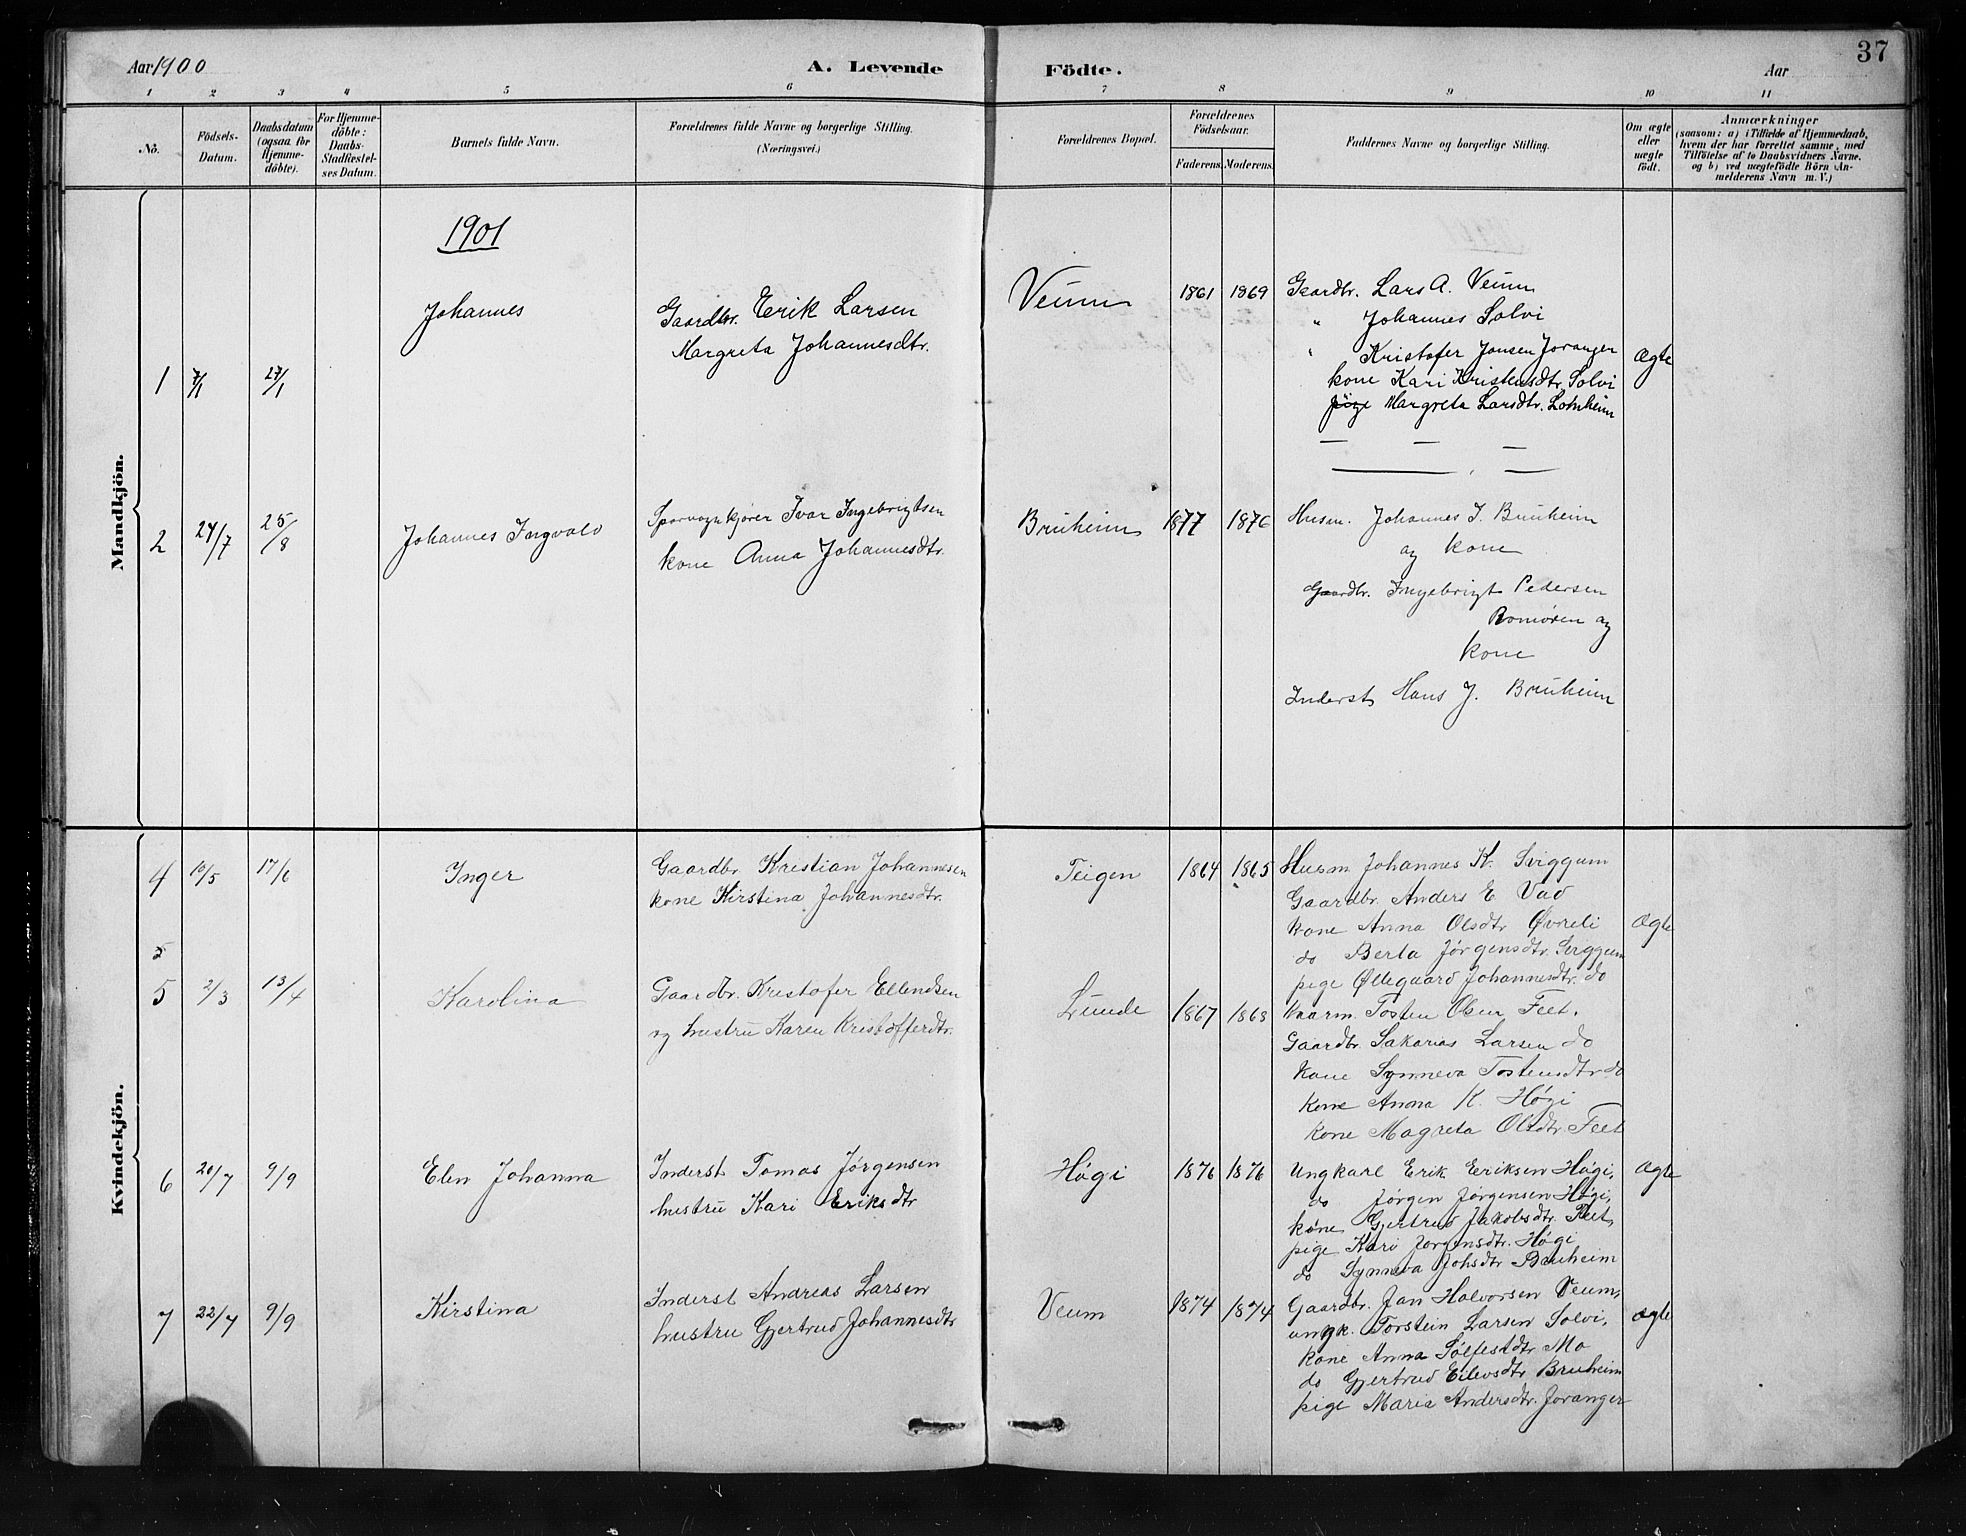 Aar 1900
A. Levende
Födte.
Aar
37
1 2 3 4 5 6 7 8 9 10 11
Nö.
Födsels-Datum.
Daabsdatum (ogsaa for Hjemme-döbte).
For Hjemme-döbte: Daabs-Stadfæstel-ses Datum.
Barnets fulde Navn.
Forældrenes fulde Navne og borgerlige Stilling. (Næringsvei.)
Forældrenes Bopæl.
Forældrenes Födselsaar.
Faderens. Moderens.
Faddernes Navne og borgerlige Stilling.
Om ægte eller uægte födt.
Anmærkninger
(saasom: a) i Tilfælde af Hjemmedaab,
hvem der har forrettet samme, med
Tilföielse af to Daabsvidners Navne,
og b) ved uægtefödte Börn An-
melderens Navn m. V.)
Mandkjön.
1901
1 7/1 27/1
Johannes
Gaardbr. Erik Larsen
Margreta Johannesdtr.
Veum
1861 1869
Gaardbr. Lars A. Veum
" Johannes Solvi
" Kristofer Jonsen Joranger
kone Kari Kristensdtr. Solvi
pige Margreta Larsdtr. Lomheim
Ægte
2 24/7 25/8
Johannes Ingvald
Sporvognkjører Ivar Ingebrigtsen
kone Anna Johannesdtr.
Bruheim
1877 1876
Husm. Johannes J. Bruheim
og kone
Gaardbr. Ingebrigt Pedersen
Romøren og
kone
Inderst Hans J. Bruheim
Kvindekjön.
4 10/5 17/6
Inger
Gaardbr Kristian Johannesen
kone Kirstina Johannesdtr.
Teigen
1864 1865
Husm Johannes K. Sviggum
Gaardbr. Anders E Vad
kone Anna Olsdtr Øvreli
do Berta Jørgensdtr. Sviggum
pige Øllegaard Johannesdtr. do
Ægte
5
5 2/3 13/4
Karolina
Gaardbr. Kristofer Ellendsen
og hustru Karen Kristofferdtr.
Lunde
1867 1868
Kaarm. Tosten Olsen Feet.
Gaardbr. Sakarias Larsen do
Kone Synneva Tostensdtr do
Kone Anna K. Høgi
Kone Magreta Olsdtr. Feet
6 20/7 9/9
Elen Johanna
Inderst Tomas Jørgensen
hustru Kari Eriksdtr
Høgi
1876 1876
Ungkarl Erik Eriksen Høgi,
do Jørgen Jørgensen Høgi,
kone Gjertrud Jakobsdtr. Feet,
pige Kari Jørgensdtr. Høgi
do Synneva Johsdtr Bruheim
Ægte
7 22/7 9/9
Kirstina
Inderst Andreas Larsen
hustru Gjertrud Johannesdtr
Veum
1874 1874
Gaardbr. Jan Halvorsen Veum,
ungk. Torstein Larsen Solvi,
kone Anna Sølfestdtr. Mo
do Gjertrud Eilevsdtr Bruheim
pige Maria Andersdtr. Joranger
Ægte